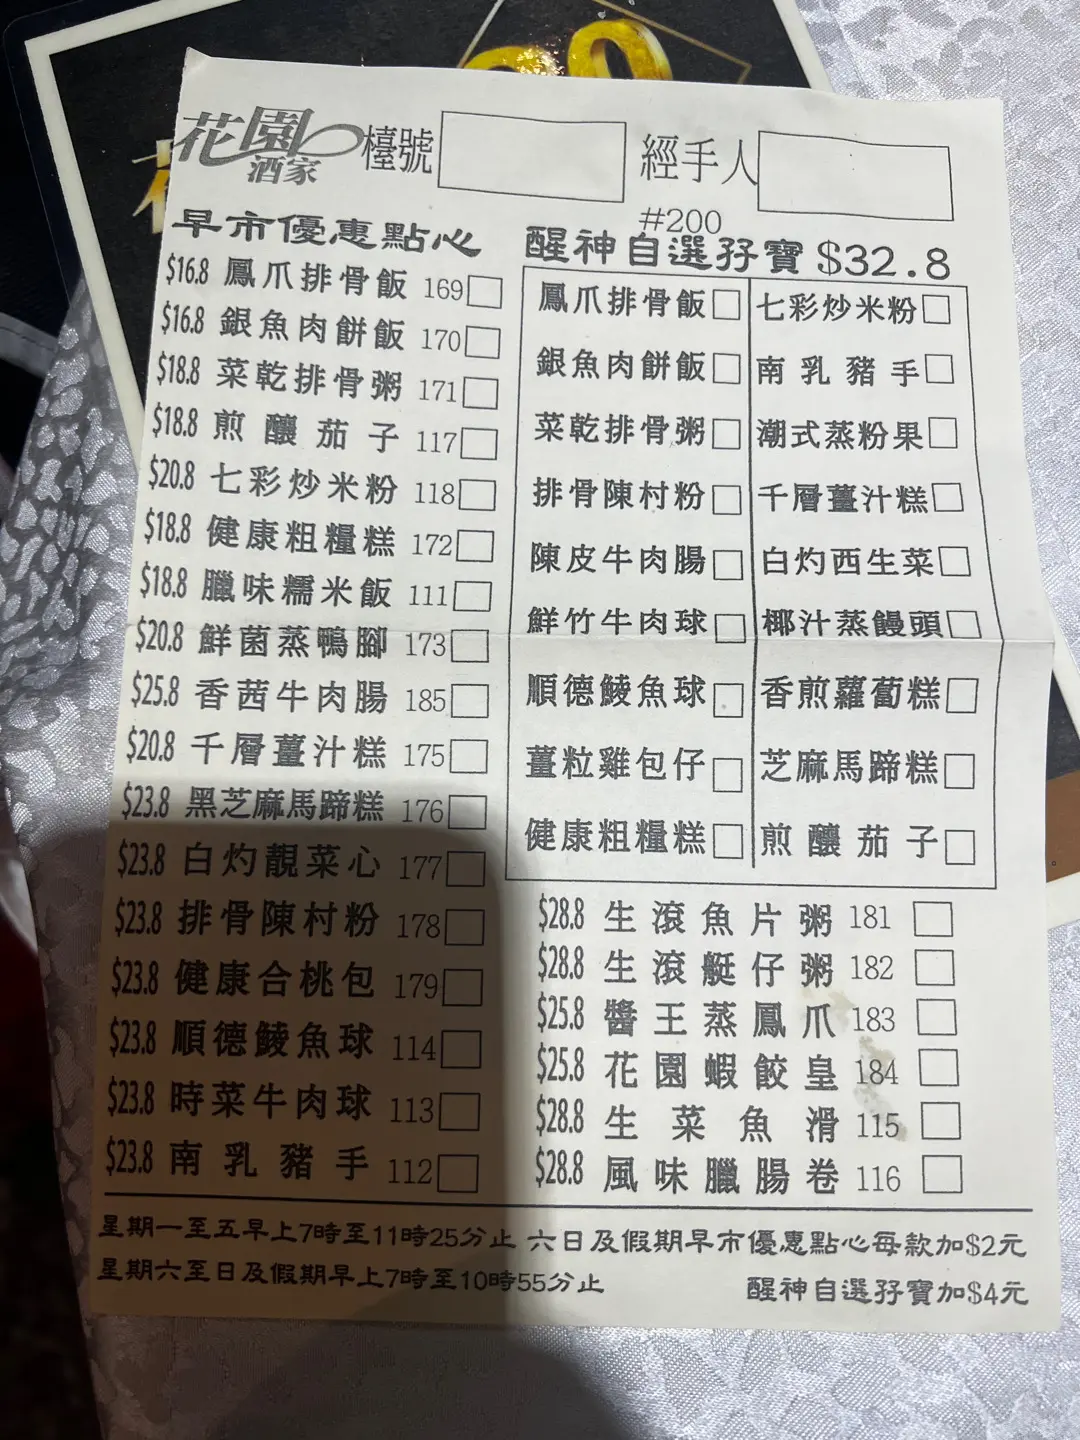 花園酒家 檯號 經手人
#200
早市優惠點心
$16.8 鳳爪排骨飯 169
$16.8 銀魚肉餅飯 170
$18.8 菜乾排骨粥 171
$18.8 煎釀茄子 117
$20.8 七彩炒米粉 118
$18.8 健康粗糧糕 172
$18.8 臘味糯米飯 111
$20.8 鮮菌蒸鴨腳 173
$25.8 香茜牛肉腸 185
$20.8 千層薑汁糕 175
$23.8 黑芝麻馬蹄糕 176
$23.8 白灼靚菜心 177
$23.8 排骨陳村粉 178
$23.8 健康合桃包 179
$23.8 順德鯪魚球 114
$23.8 時菜牛肉球 113
$23.8 南乳豬手 112
醒神自選孖寶 $32.8
鳳爪排骨飯
銀魚肉餅飯
菜乾排骨粥
排骨陳村粉
陳皮牛肉腸
鮮竹牛肉球
順德鯪魚球
薑粒雞包仔
健康粗糧糕
七彩炒米粉
南乳豬手
潮式蒸粉果
千層薑汁糕
白灼西生菜
椰汁蒸饅頭
香煎蘿蔔糕
芝麻馬蹄糕
煎釀茄子
$28.8 生滾魚片粥 181
$28.8 生滾艇仔粥 182
$25.8 醬王蒸鳳爪 183
$25.8 花園蝦餃皇 184
$28.8 生菜魚滑 115
$28.8 風味臘腸卷 116
星期一至五早上7時至11時25分止 六日及假期早市優惠點心每款加$2元
星期六至日及假期早上7時至10時55分止 醒神自選孖寶加$4元